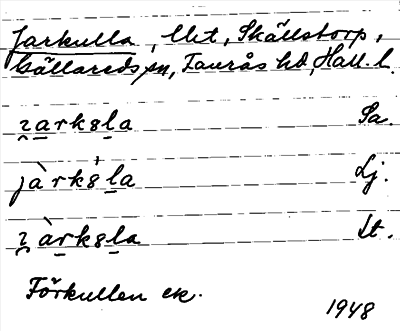 Jarkulla, llt, Skällstorp,
Källareds sn, Faurås hd, Hall. l.
ɿarkəla Sa.
jàrkəla Lj.
ɿàrkəla St.
Förkullen ek.
1948